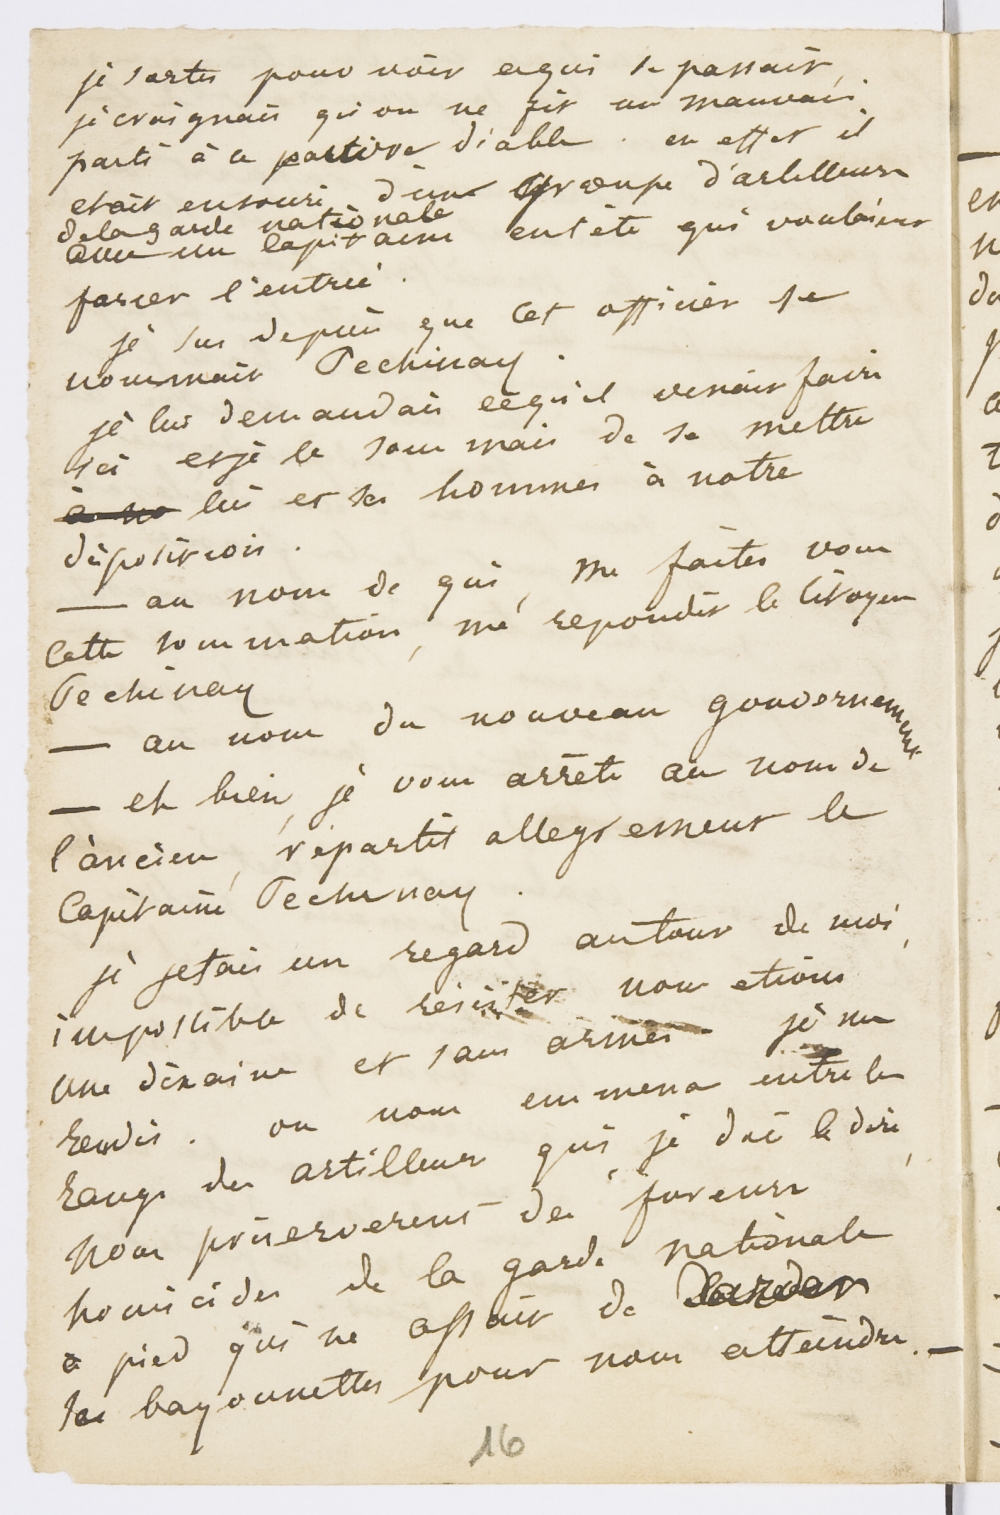 je sortis pour voir ce qui se passait,
je craignais qu'on ne fit un mauvais
parti à ce pauvre diable. en effet il
etait entouré d'un groupe d'artilleurs
de la garde nationale
avec un capitaine en tête qui voulaient
forcer l'entrée.
je sus depuis que cet officier se
nommait Pechinay.
je lui demandais ce qu'il venait faire
ici et je le sommais de se mettre
lui et ses hommes à notre
disposition.
— au nom de qui, me faites vous
cette sommation, me repondit le Citoyen
Pechinay
— au nom du nouveau gouvernement
— eh bien, je vous arrête au nom de
l'ancien, répartit allegrement le
Capitaine Pechinay.
je jetais un regard autour de moi,
impossible de résister nous etions
une dizaine et sans armes je me
rendis. on nous emmena entre les
rangs des artilleurs qui, je dois le dire,
nous préserverent des fureurs
homicides de la garde nationale
à pied qui ne cessait de darder
ses bayonnettes pour nous atteindre. —
16